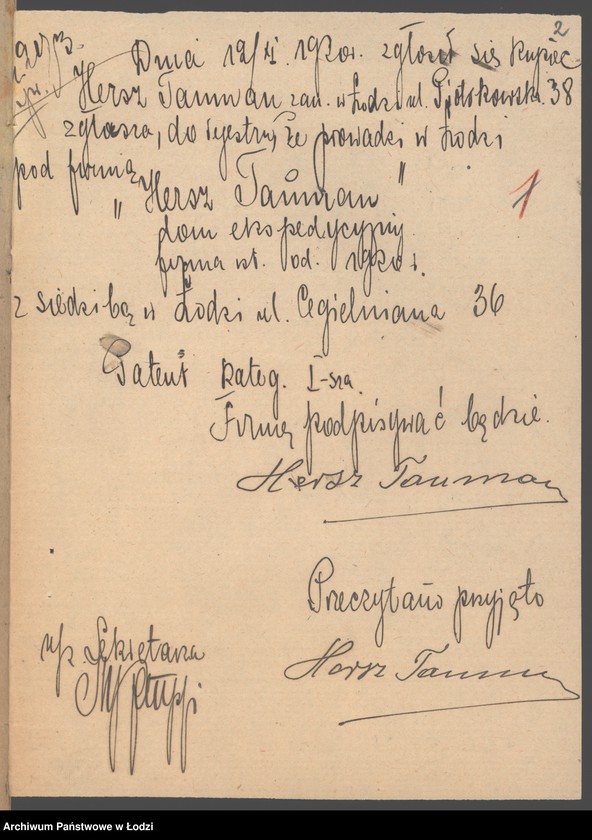 2
Dnia 19/XI. 19 r. zgłosił się kupiec
Hersz Tauman zam. w Łodzi ul. Piotrkowska 38
zgłasza, do rejestru, że prowadzi w Łodzi
pod firmą
„Hersz Tauman"
1
dom ekspedycyjny
firma ist. od.
z siedzibą w Łodzi ul. Cegielniana 36
Patent kateg. I-sza.
Firmę podpisywać będzie.
Hersz Tauman
Przeczytano przyjęto
Hersz Tauman
Sekretarza
Archiwum Państwowe w Łodzi